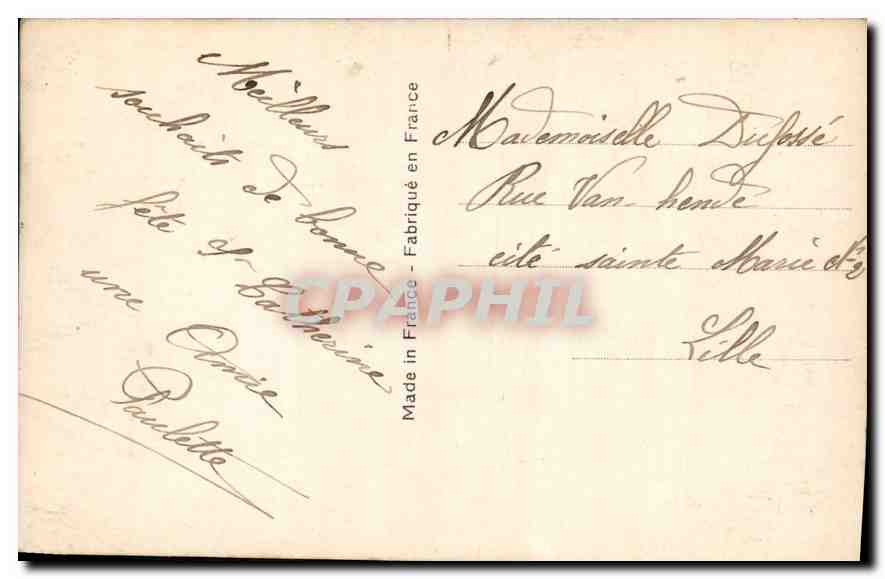 Meilleurs
souhaits de bonne
fête Ste Catherine
une Amie
Paulette
Made in France - Fabriqué en France
Mademoiselle Dufossé
Rue Van-hende
cité sainte Marie N° 2
Lille
CPAPHIL